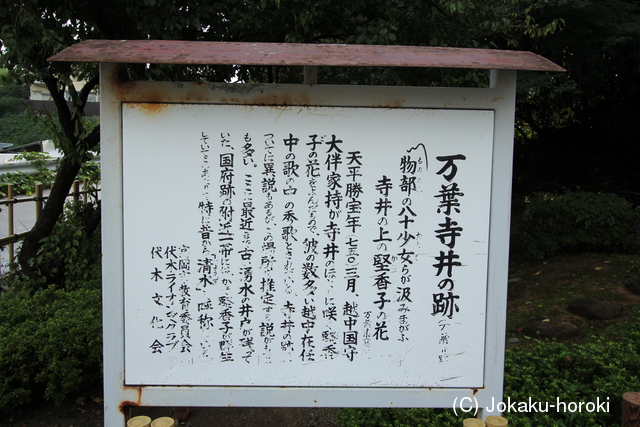 万葉寺井の跡
物部の八十少女らが汲みまがふ
寺井の上の堅香子の花
天平勝宝二年 七五〇 三月、越中国守
大伴家持が寺井のほとりに咲く堅香
子の花をよんだもので、彼の数多い越中在任
中の歌の中の秀歌とされている。寺井の跡に
ついては異説もあるが、この場所と推定する説がもっと
も多い。ここに最近まで古い湧水の井戸が残って
いた。国府跡の附近一帯には 堅香子が 生
していて 特に昔から「清水」と呼称
高岡市教育委員会
伏木ライオンズクラブ
伏木文化会
(C) Jokaku-horoki